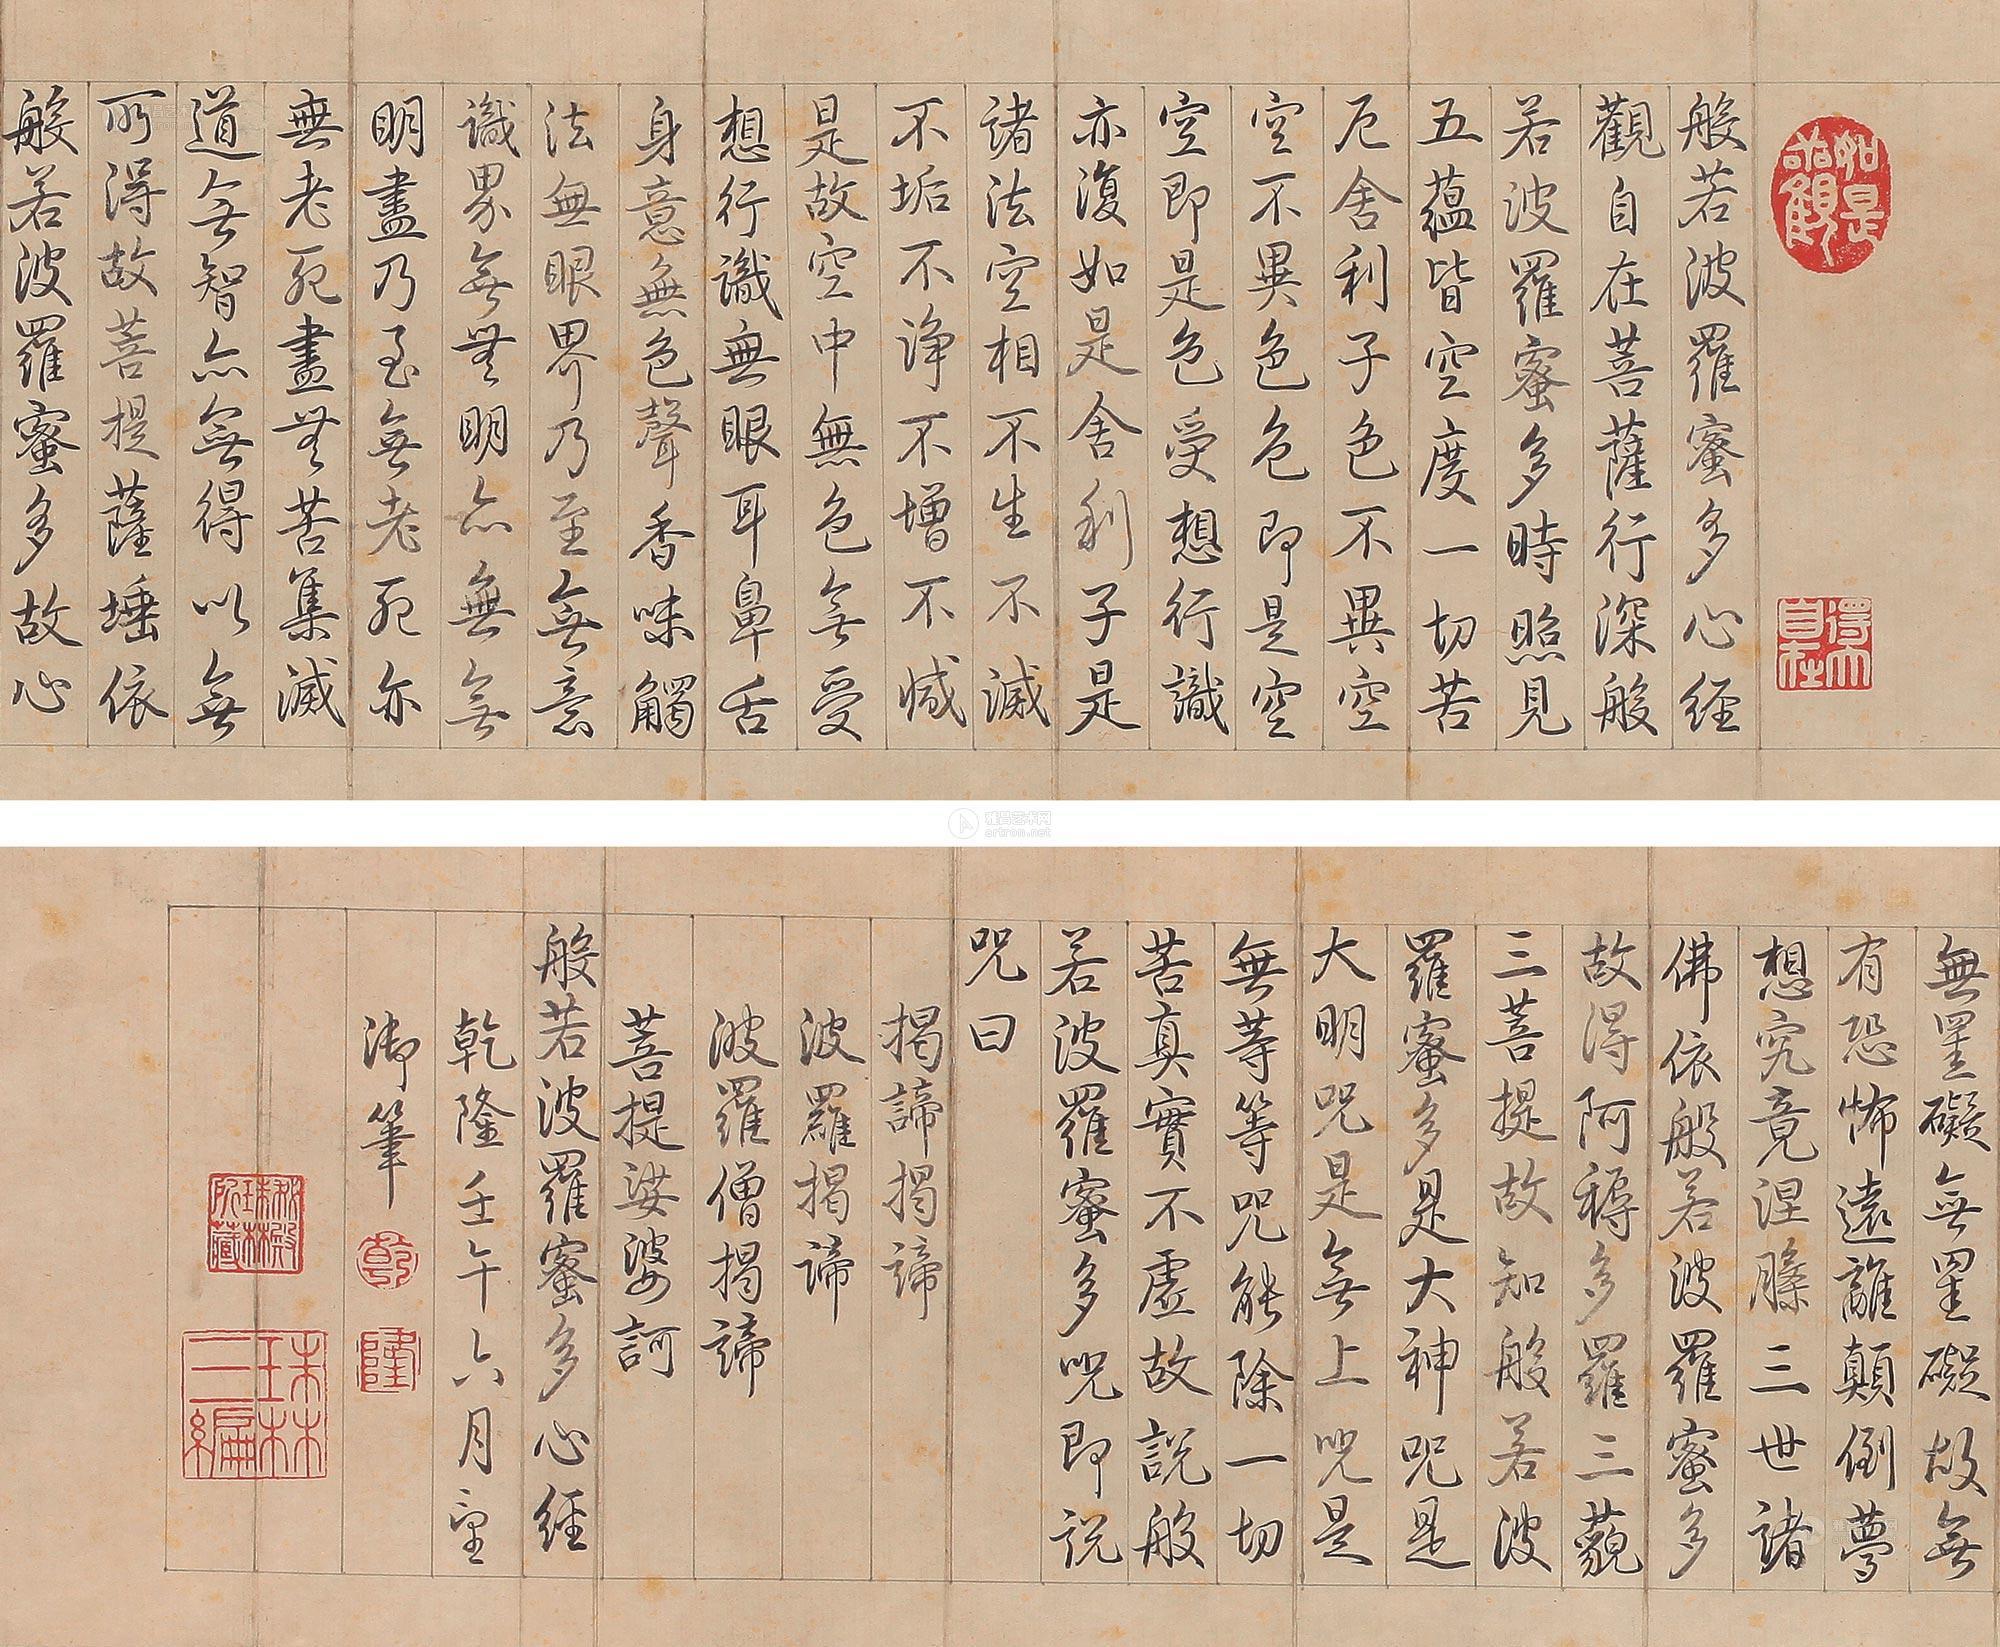 如是
等觀
得大
自在
般若波羅蜜多心經
觀自在菩薩行深般
若波羅蜜多時照見
五蘊皆空度一切苦
厄舍利子色不異空
空不異色色即是空
空即是色受想行識
亦復如是舍利子是
諸法空相不生不滅
不垢不淨不增不減
是故空中無色無受
想行識無眼耳鼻舌
身意無色聲香味觸
法無眼界乃至無意
識界無無明亦無無
明盡乃至無老死亦
無老死盡無苦集滅
道無智亦無得以無
所得故菩提薩埵依
般若波羅蜜多故心
雅昌艺术网
artron.net
無罣礙無罣礙故無
有恐怖遠離顛倒夢
想究竟涅槃三世諸
佛依般若波羅蜜多
故得阿耨多羅三藐
三菩提故知般若波
羅蜜多是大神咒是
大明咒是無上咒是
無等等咒能除一切
苦真實不虛故說般
若波羅蜜多咒即說
咒曰
揭諦揭諦
波羅揭諦
波羅僧揭諦
菩提娑婆訶
般若波羅蜜多心經
乾隆壬午六月望
御筆
乾
隆
秘殿
珠林
所藏
珠林
三編